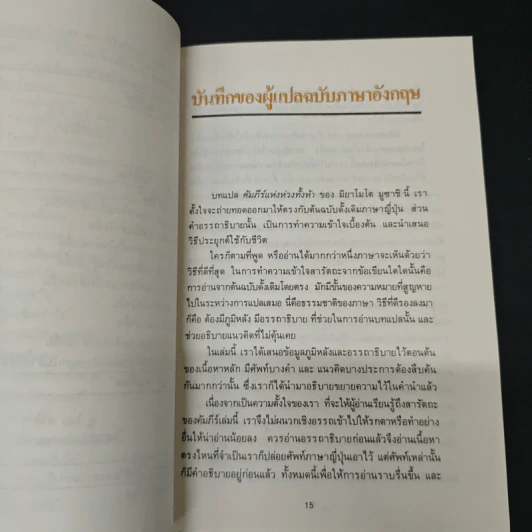 บันทึกของผู้แปลฉบับภาษาอังกฤษ
บทแปล คัมภีร์แห่งห่วงทั้งห้า ของ มิยาโมโต มูซาชิ นี้ เรา
ตั้งใจจะถ่ายทอดออกมาให้ตรงกับต้นฉบับดั้งเดิมภาษาญี่ปุ่น ส่วน
คำอรรถาธิบายนั้น เป็นการทำความเข้าใจเบื้องต้น และนำเสนอ
วิธีประยุกต์ใช้กับชีวิต
ใครก็ตามที่พูด หรืออ่านได้มากกว่าหนึ่งภาษาจะเห็นด้วยว่า
วิธีที่ดีที่สุด ในการทำความเข้าใจสารัตถะจากข้อเขียนใดใดนั้นคือ
การอ่านจากต้นฉบับดั้งเดิมโดยตรง มักมีชั้นของความหมายที่สูญหาย
ไปในระหว่างการแปลเสมอ นี่คือธรรมชาติของภาษา วิธีที่ดีรองลงมา
ก็คือ ต้องมีภูมิหลัง มีอรรถาธิบาย ที่ช่วยในการอ่านบทแปลนั้น และ
ช่วยอธิบายแนวคิดที่ไม่คุ้นเคย
ในเล่มนี้ เราได้เสนอข้อมูลภูมิหลังและอรรถาธิบายไว้ตอนต้น
ของเนื้อหาหลัก มีศัพท์บางคำ และ แนวคิดบางประการต้องสืบค้น
กันมากกว่านั้น ซึ่งเราก็ได้นำมาอธิบายขยายความไว้ในคำนำแล้ว
เนื่องจากเป็นความตั้งใจของเรา ที่จะให้ผู้อ่านเรียนรู้ถึงสารัตถะ
ของคัมภีร์เล่มนี้ เราจึงไม่ผนวกเชิงอรรถเข้าไปให้รกตาหรือทำอย่าง
อื่นให้น่าอ่านน้อยลง ควรอ่านอรรถาธิบายก่อนแล้วจึงอ่านเนื้อหา
ตรงไหนที่จำเป็นเราก็ปล่อยศัพท์ภาษาญี่ปุ่นเอาไว้ แต่ศัพท์เหล่านั้น
ก็มีคำอธิบายอยู่ก่อนแล้ว ทั้งหมดนี้เพื่อให้การอ่านราบรื่นขึ้น และ
15